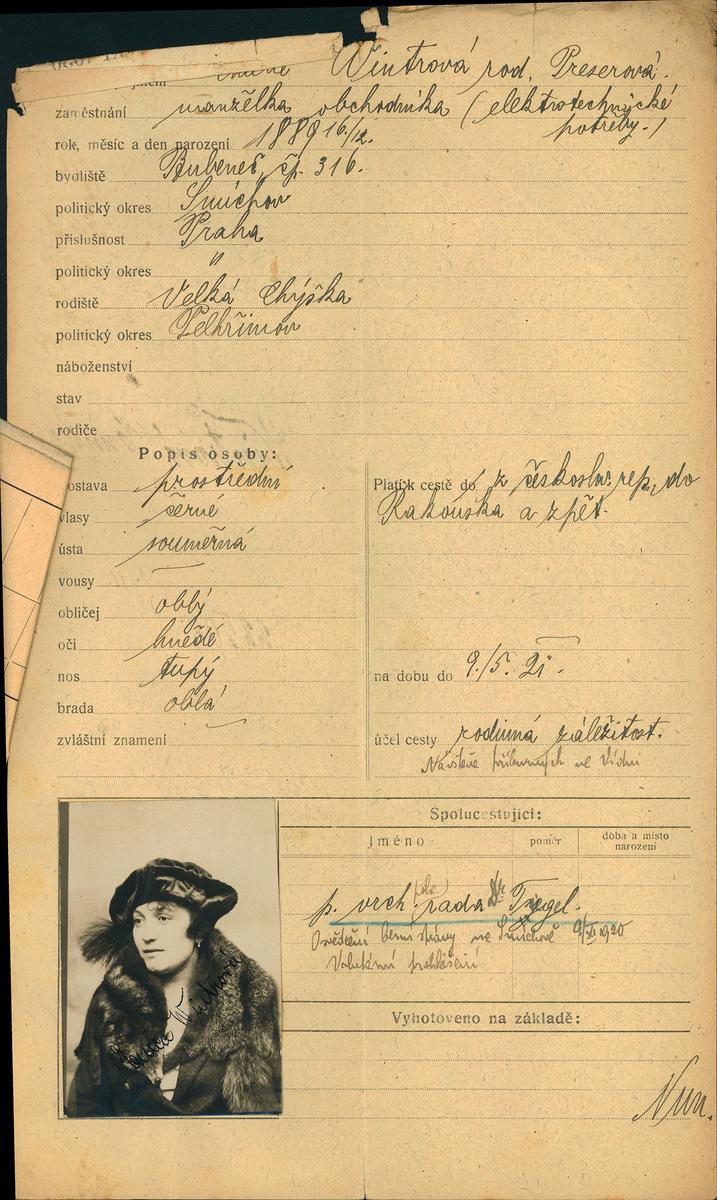 Wintrová rod. Preserová.
zaměstnání manželka obchodníka (elektrotechnycké
potřeby.)
rok, měsíc a den narození 1889 16/12.
bydliště Bubeneč, čp. 316.
politický okres Smíchov
příslušnost Praha
politický okres "
rodiště Velká Chýška
politický okres Pelhřimov
náboženství
stav
rodiče
Popis osoby:
postava prostřední
vlasy černé
ústa souměrná
vousy —
obličej oblý
oči hnědé
nos tupý
brada oblá
zvláštní znamení
Platí k cestě do z českoslov. rep. do
Rakouska a zpět.
na dobu do 9./5. 21.
účel cesty rodinná záležitost.
Návštěva příbuzných ve Vídni
Spolucestující:
Jméno poměr doba a místo narození
p. vrch. pol. rada Dr
Osvědčení berní správy na Smíchově 9/XI 1920
prohlášení
Wintrová
Vyhotoveno na základě: